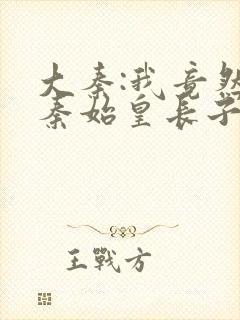 大秦:我竟然
秦始皇长子
王戰方